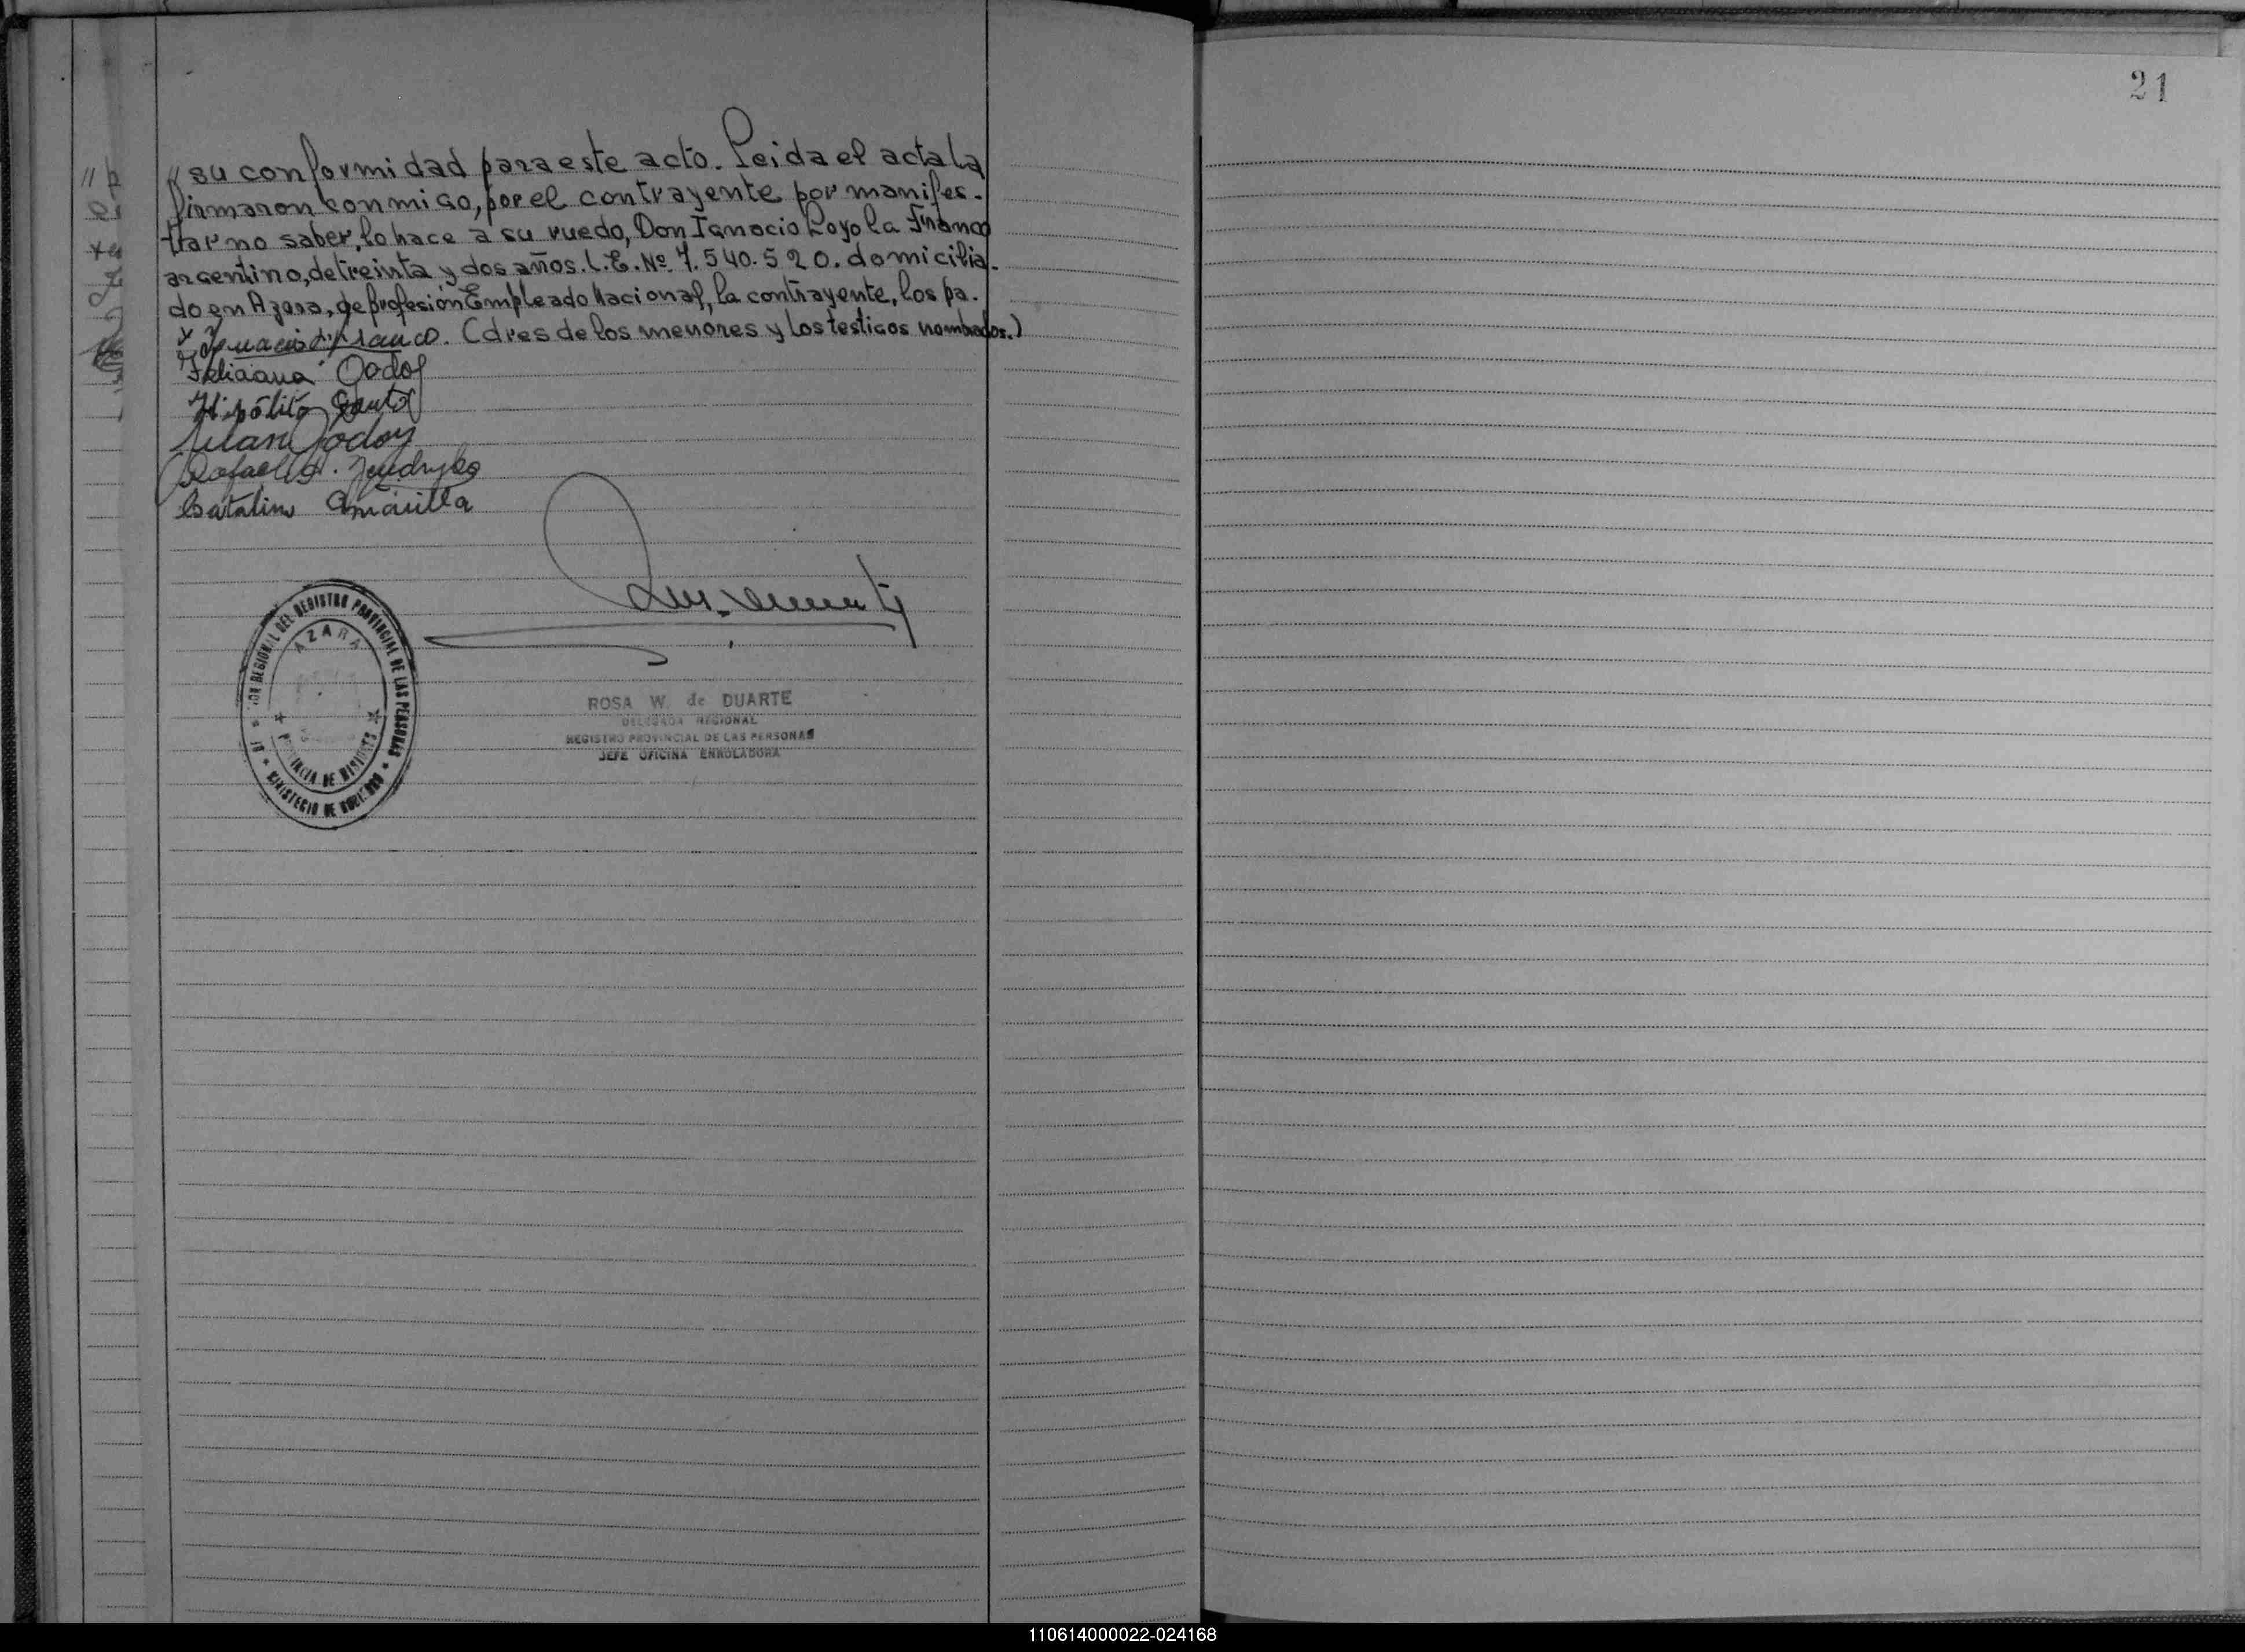 21
// su conformidad para este acto. Leida el acta la
firmaron conmigo, por el contrayente por manifes-
tar no saber, lo hace a su ruedo, Don Ignacio Loyola Franco
argentino, de treinta y dos años. L.E. Nº 7.540.520. domicilia-
do en Azara, de profesión Empleado Nacional, la contrayente, los pa-
Ignacio L. Franco. (dres de los menores y los testigos nombrados.)
Feliciana Godoy
Hipólito
Juan Godoy
Rafael
Catalino Amarilla
REGIONAL DEL REGISTRO PROVINCIAL DE LAS PERSONAS
MINISTERIO DE GOBIERNO
AZARA
PROVINCIA DE MISIONES
ROSA W. de DUARTE
DELEGADA REGIONAL
REGISTRO PROVINCIAL DE LAS PERSONAS
JEFE OFICINA ENROLADORA
110614000022-024168